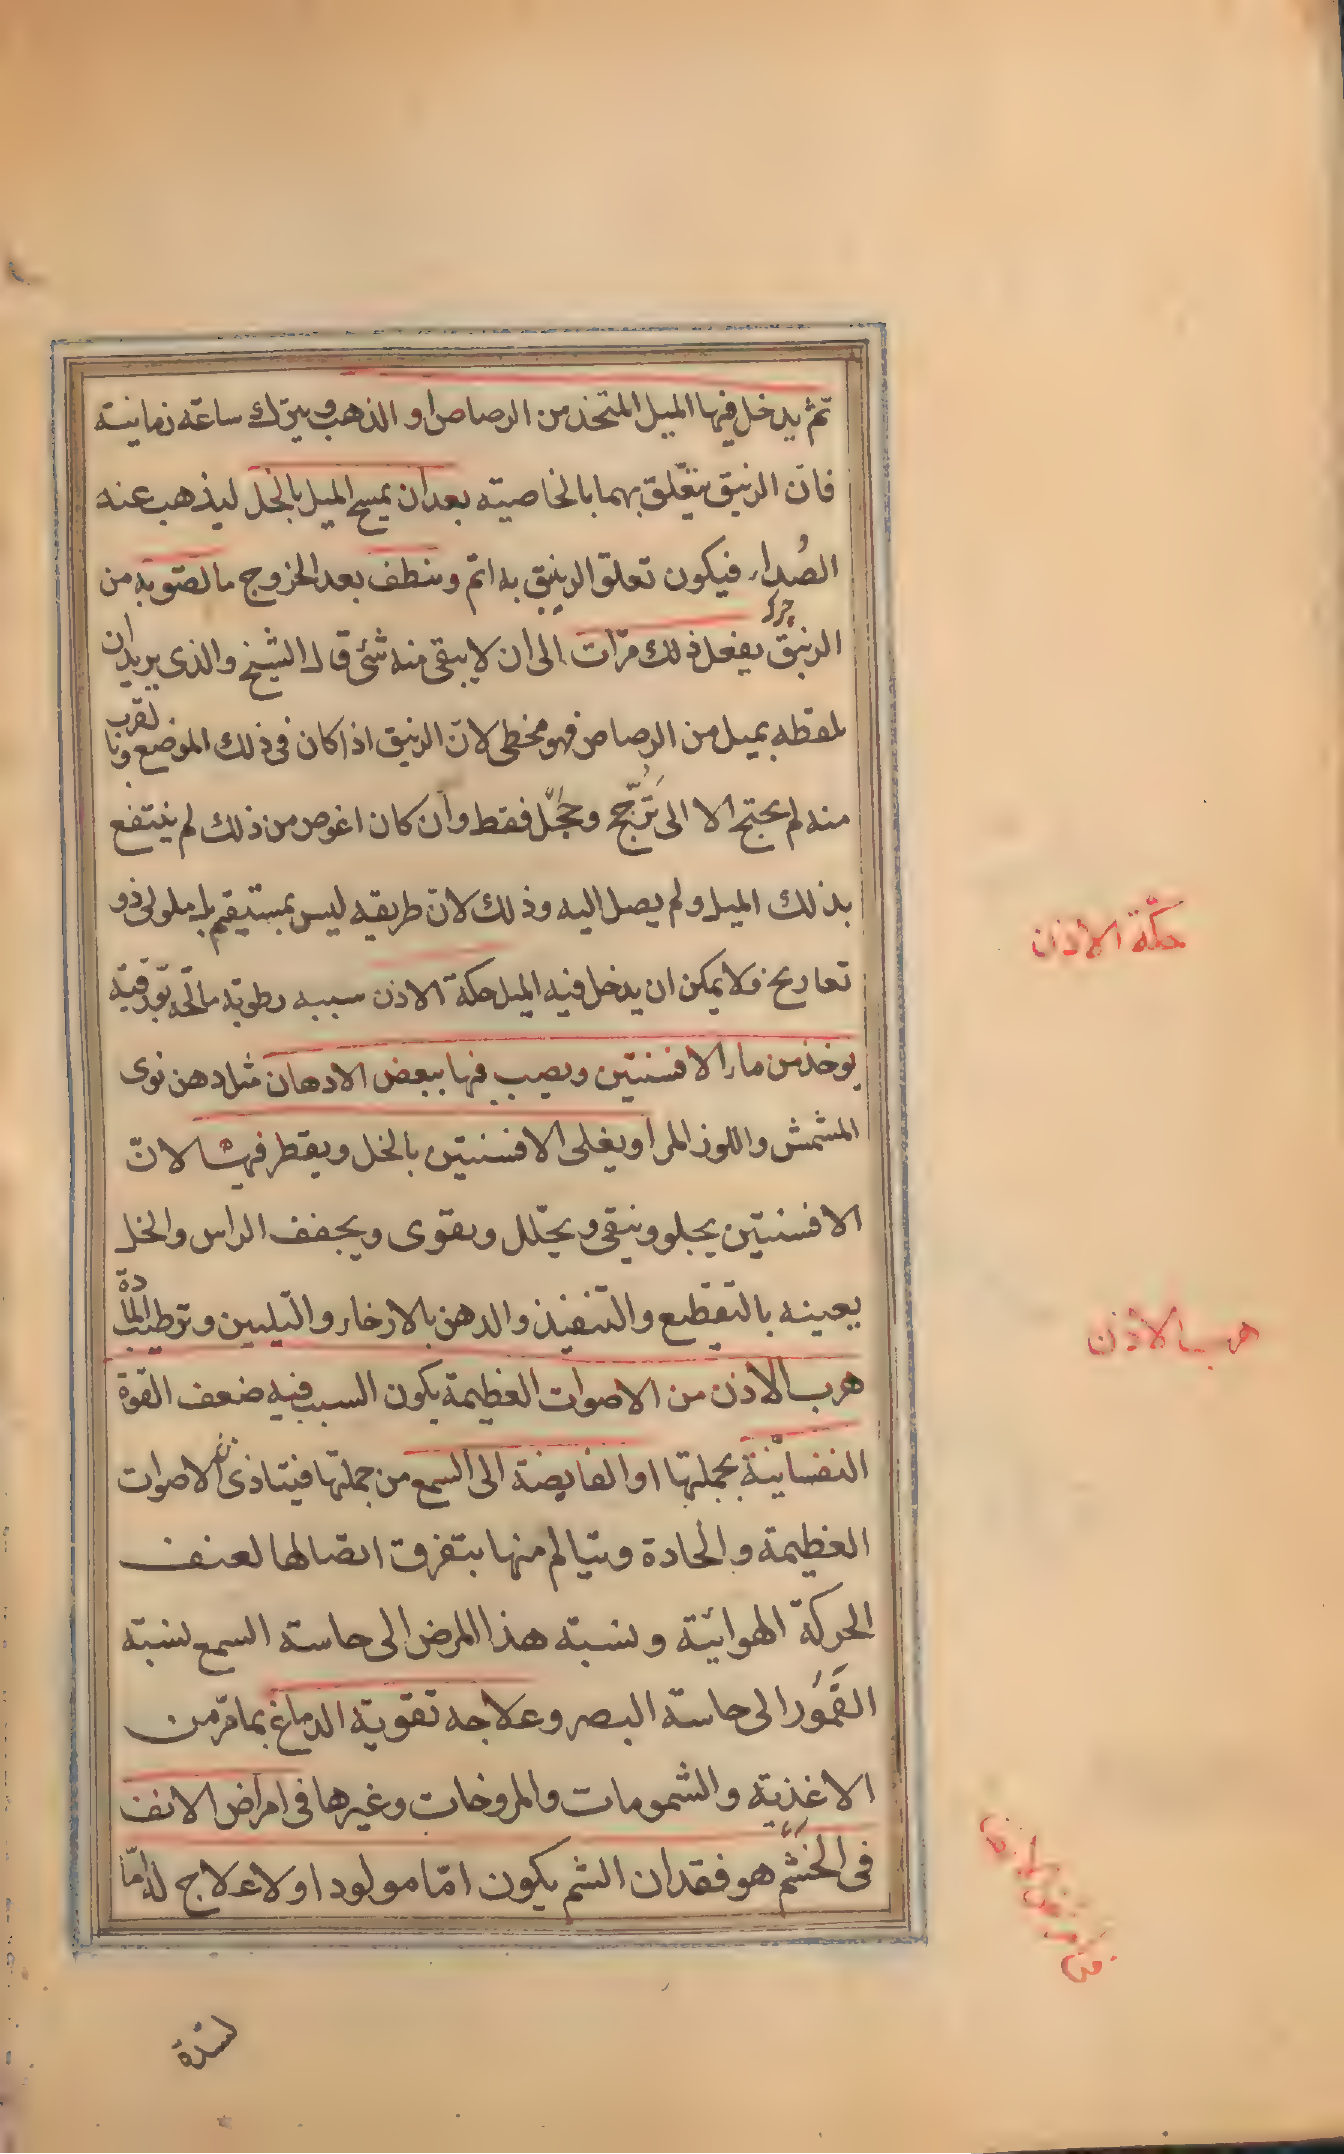 ثم يدخل فيها الميل المتخذ من الرصاص او الذهب ويترك ساعة زمانية
فان الزيبق يتعلق بهما بالخاصية بعد ان يمسح الميل بالخل ليذهب عنه
الصُداء فيكون تعلق الزيبق به اتم وينظف بعد الخروج ما لصق به من
الزيبق يفعل ذلك مرّات الى ان لا يبقى منه شئ قال الشيخ والذى يريد ان
يلقطه بميل من الرصاص فهو مخطى لانّ الزيبق اذا كان فى ذلك الموضع وبا لقرب
منه لم يحتج الا الى ترجّج وحجل فقط وان كان اغوص من ذلك لم ينتفع
بذلك الميل ولم يصل اليه وذلك لانّ طريقه ليس بمستقيم بل ملولى ذو
تعاريج فلا يمكن ان يدخل فيه الميل حكة الاذن سببه رطوبة مالحة بورقية
يوخذ من ماء الافسنتين ويصب فيها ببعض الادهان مثل دهن نوى
المشمش واللوز المر او يغلى الافسنتين بالخل ويقطر فيها لانّ
الافسنتين يجلو وينقى ويحلّل ويقوى ويجفف الراس والخل
يعينه بالتقطيع والتنفيذ والدهن بالارخاء والتليين وترطيب المادة
هرب الاذن من الاصوات العظيمة يكون السبب فيه ضعف القوة
النفسانية بجملتها او الفايضة الى السمع من جملتها فيتاذى من الاصوات
العظيمة والحادة ويتالم منها بتفرق اتصالها لعنف
الحركة الهوائية ونسبة هذا المرض الى حاسة السمع نسبة
القَمَور الى حاسة البصر وعلاجه تقوية الدماغ بما مرّ من
الاغذية والشمومات والمروخات وغيرها فى امراض الانف
فى الخَشَم هو فقدان الشم يكون امّا مولودا ولا علاج له امّا
لسدة
حكّة الاذن
هرب الاذن
فى امراض الانف